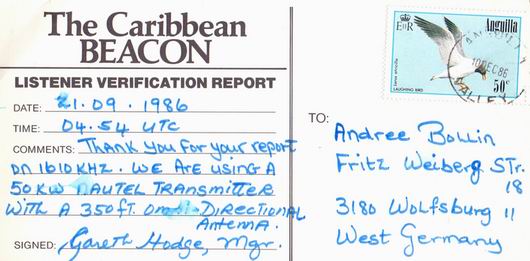 The Caribbean
BEACON
LISTENER VERIFICATION REPORT
DATE: 21.09.1986
TIME: 04.54 UTC
COMMENTS: THANK YOU for your report
on 1610 KHZ. WE ARE USING A
50 KW NAUTEL TRANSMITTER
WITH A 350 FT. OMNI-DIRECTIONAL
Antenna.
SIGNED: Gareth Hodge, Mgr.
Anguilla
EIIR
50c
LAUGHING BIRD
10 DEC 86
VALLEY
TO:
Andree Bollin
Fritz Weiberg STr.
18
3180 Wolfsburg 11
West Germany